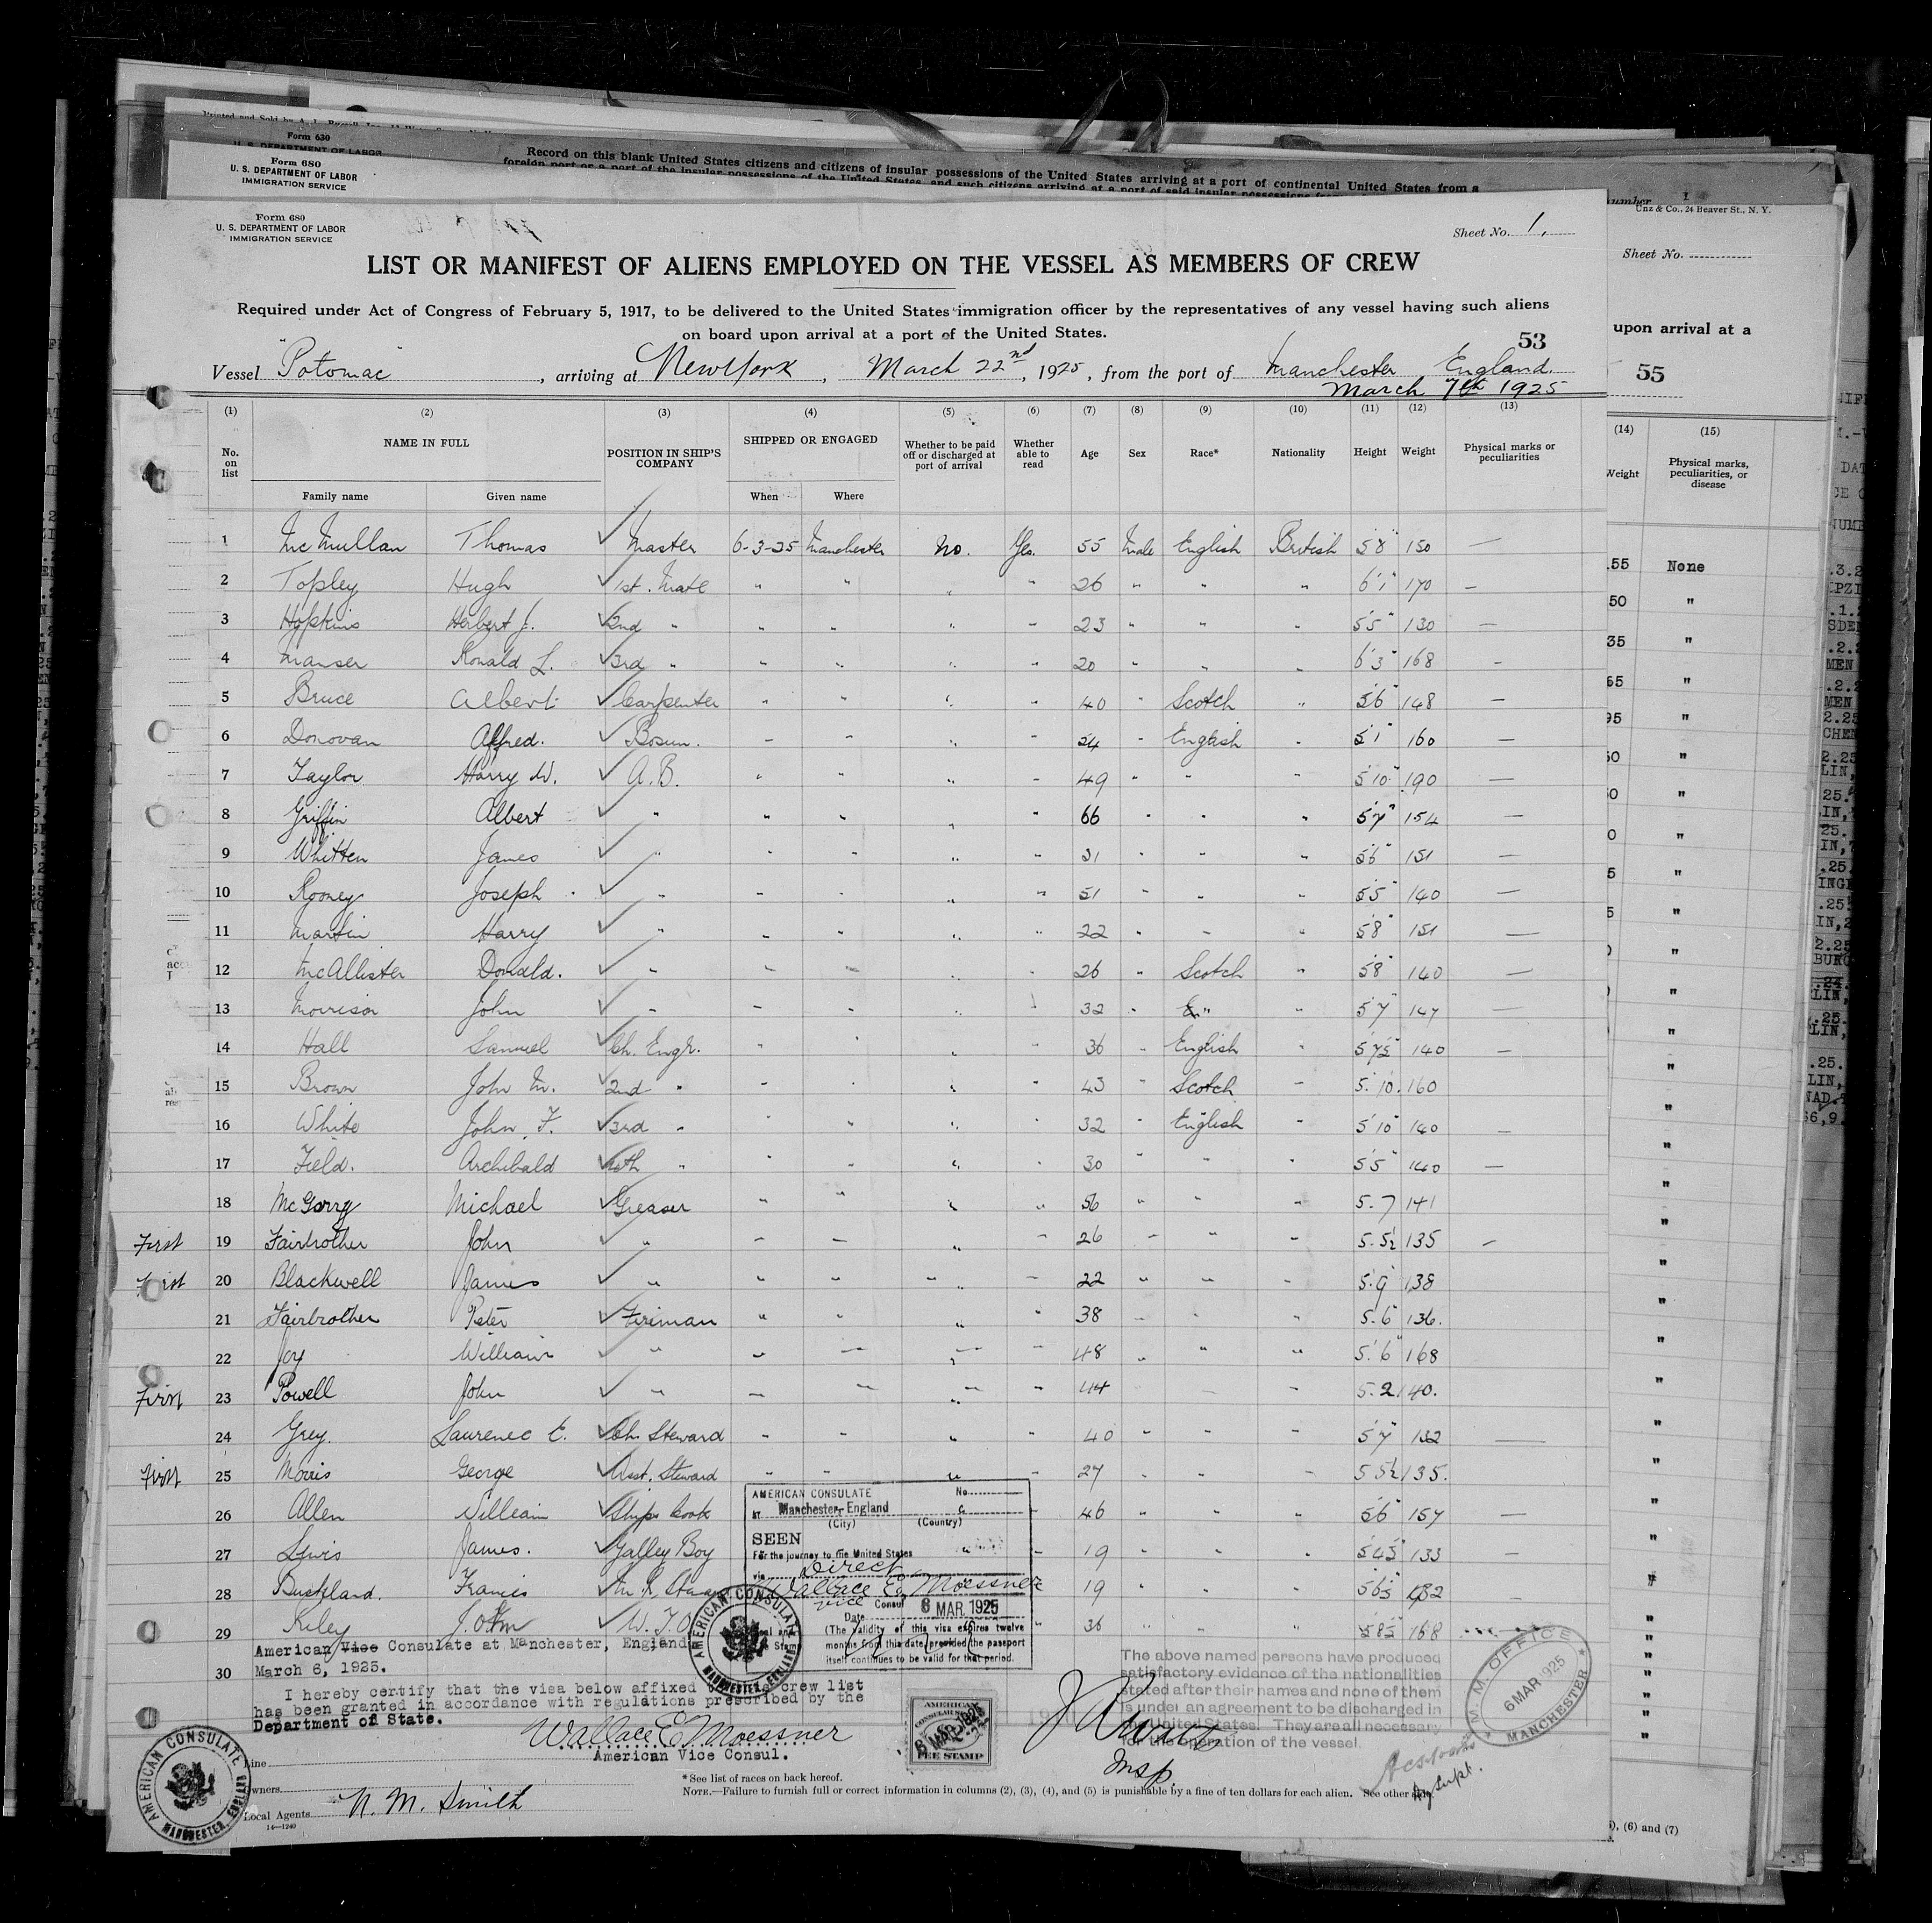 Form 630
U. S. DEPARTMENT OF LABOR
Record on this blank United States citizens and citizens of insular possessions of the United States arriving at a port of continental United States from a
foreign port or a port of the insular possessions of the United States, and such citizens arriving at a port of said insular possessions
Form 680
U. S. DEPARTMENT OF LABOR
IMMIGRATION SERVICE
Unz & Co., 24 Beaver St., N. Y.
Sheet No.
upon arrival at a
55
Form 680
U. S. DEPARTMENT OF LABOR
IMMIGRATION SERVICE
Sheet No. 1,
LIST OR MANIFEST OF ALIENS EMPLOYED ON THE VESSEL AS MEMBERS OF CREW
Required under Act of Congress of February 5, 1917, to be delivered to the United States immigration officer by the representatives of any vessel having such aliens
on board upon arrival at a port of the United States.
53
Vessel "Potomac", arriving at New York, March 22nd, 1925, from the port of Manchester England.
March 7th 1925
(1) (2) (3) (4) (5) (6) (7) (8) (9) (10) (11) (12) (13)
No. on list NAME IN FULL POSITION IN SHIP'S COMPANY SHIPPED OR ENGAGED Whether to be paid off or discharged at port of arrival Whether able to read Age Sex Race* Nationality Height Weight Physical marks or peculiarities
Family name Given name When Where
1 McMullan Thomas Master 6-3-25 Manchester No. Yes. 55 Male English British 5'8" 150 —
2 Topley Hugh 1st. Mate " " " " 26 " " " 6'1" 170 —
3 Hopkins Herbert J. 2nd " " " " " 23 " " " 5'5" 130 —
4 Manser Ronald L. 3rd " " " " " 20 " " " 6'3" 168 —
5 Bruce Albert Carpenter " " " " 40 " Scotch " 5'6" 148 —
6 Donovan Alfred. Bosun. " " " " 54 " English " 5'1" 160 —
7 Taylor Harry W. A.B. " " " " 49 " " " 5'10" 190 —
8 Griffin Albert " " " " " 66 " " " 5'7" 154 —
9 Whitten James " " " " " 31 " " " 5'6" 151 —
10 Rooney Joseph " " " " " 51 " " " 5'5" 140 —
11 Martin Harry " " " " " 22 " " " 5'8" 151 —
12 McAllister Donald. " " " " " 26 " Scotch " 5'8" 140 —
13 Morrison John " " " " " 32 " " " 5'7" 147 —
14 Hall Samuel Ch. Engr. " " " " 36 " English " 5'7½" 140 —
15 Brown John M. 2nd " " " " " 43 " Scotch " 5'10" 160
16 White John F. 3rd " " " " " 32 " English " 5'10" 140 —
17 Field. Archibald 4th " " " " " 30 " " " 5'5" 140 —
18 McGarry Michael Greaser " " " " 56 " " " 5.7 141
First 19 Fairbrother John " " " " " 26 " " " 5.5½ 135 —
First 20 Blackwell James " " " " " 22 " " " 5'9" 138
21 Fairbrother Peter Fireman " " " " 38 " " " 5.6" 136.
22 Joy William " " " " " 48 " " " 5'6" 168
First 23 Powell John " " " " " 44 " " " 5.2 140.
24 Grey. Laurence E. Ch. Steward " " " " 40 " " " 5'7" 132 —
First 25 Morris George Asst. Steward " " " " 27 " " " 5 5½ 135.
26 Allen William Ships Cook 46 " " " 5'6" 157 —
27 Lewis James. Galley Boy 19 " " " 5'4½" 133 —
28 Buckland. Francis 19 " " " 5'6½ 132 —
29 Riley John W.T.O. 36 " " " 5'8½" 168
30
AMERICAN CONSULATE No.
AT Manchester, England
(City) (Country)
SEEN
For the journey to the United States
via Direct
Wallace E. Moessner
vice Consul
Date 6 MAR. 1925
(The validity of this visa expires twelve
months from this date, provided the passport
itself continues to be valid for that period.
AMERICAN CONSULATE
MANCHESTER, ENGLAND
American Vice Consulate at Manchester, England
March 6, 1925.
I hereby certify that the visa below affixed crew list
has been granted in accordance with regulations prescribed by the
Department of State.
Wallace E. Moessner
American Vice Consul.
AMERICAN
CONSULAR SERVICE
6 MAR 1925
FEE STAMP
The above named persons have produced
satisfactory evidence of the nationalities
stated after their names and none of them
is under an agreement to be discharged in
the United States. They are all necessary
for the operation of the vessel.
Insp.
M. M. OFFICE
6 MAR 1925
MANCHESTER
AMERICAN CONSULATE
MANCHESTER, ENGLAND
Line
Owners
Local Agents N. M. Smith
14—1240
*See list of races on back hereof.
NOTE.—Failure to furnish full or correct information in columns (2), (3), (4), and (5) is punishable by a fine of ten dollars for each alien. See other side.
(14) (15)
Weight Physical marks, peculiarities, or disease
55 None
50 "
35 "
65 "
95 "
(6) and (7)